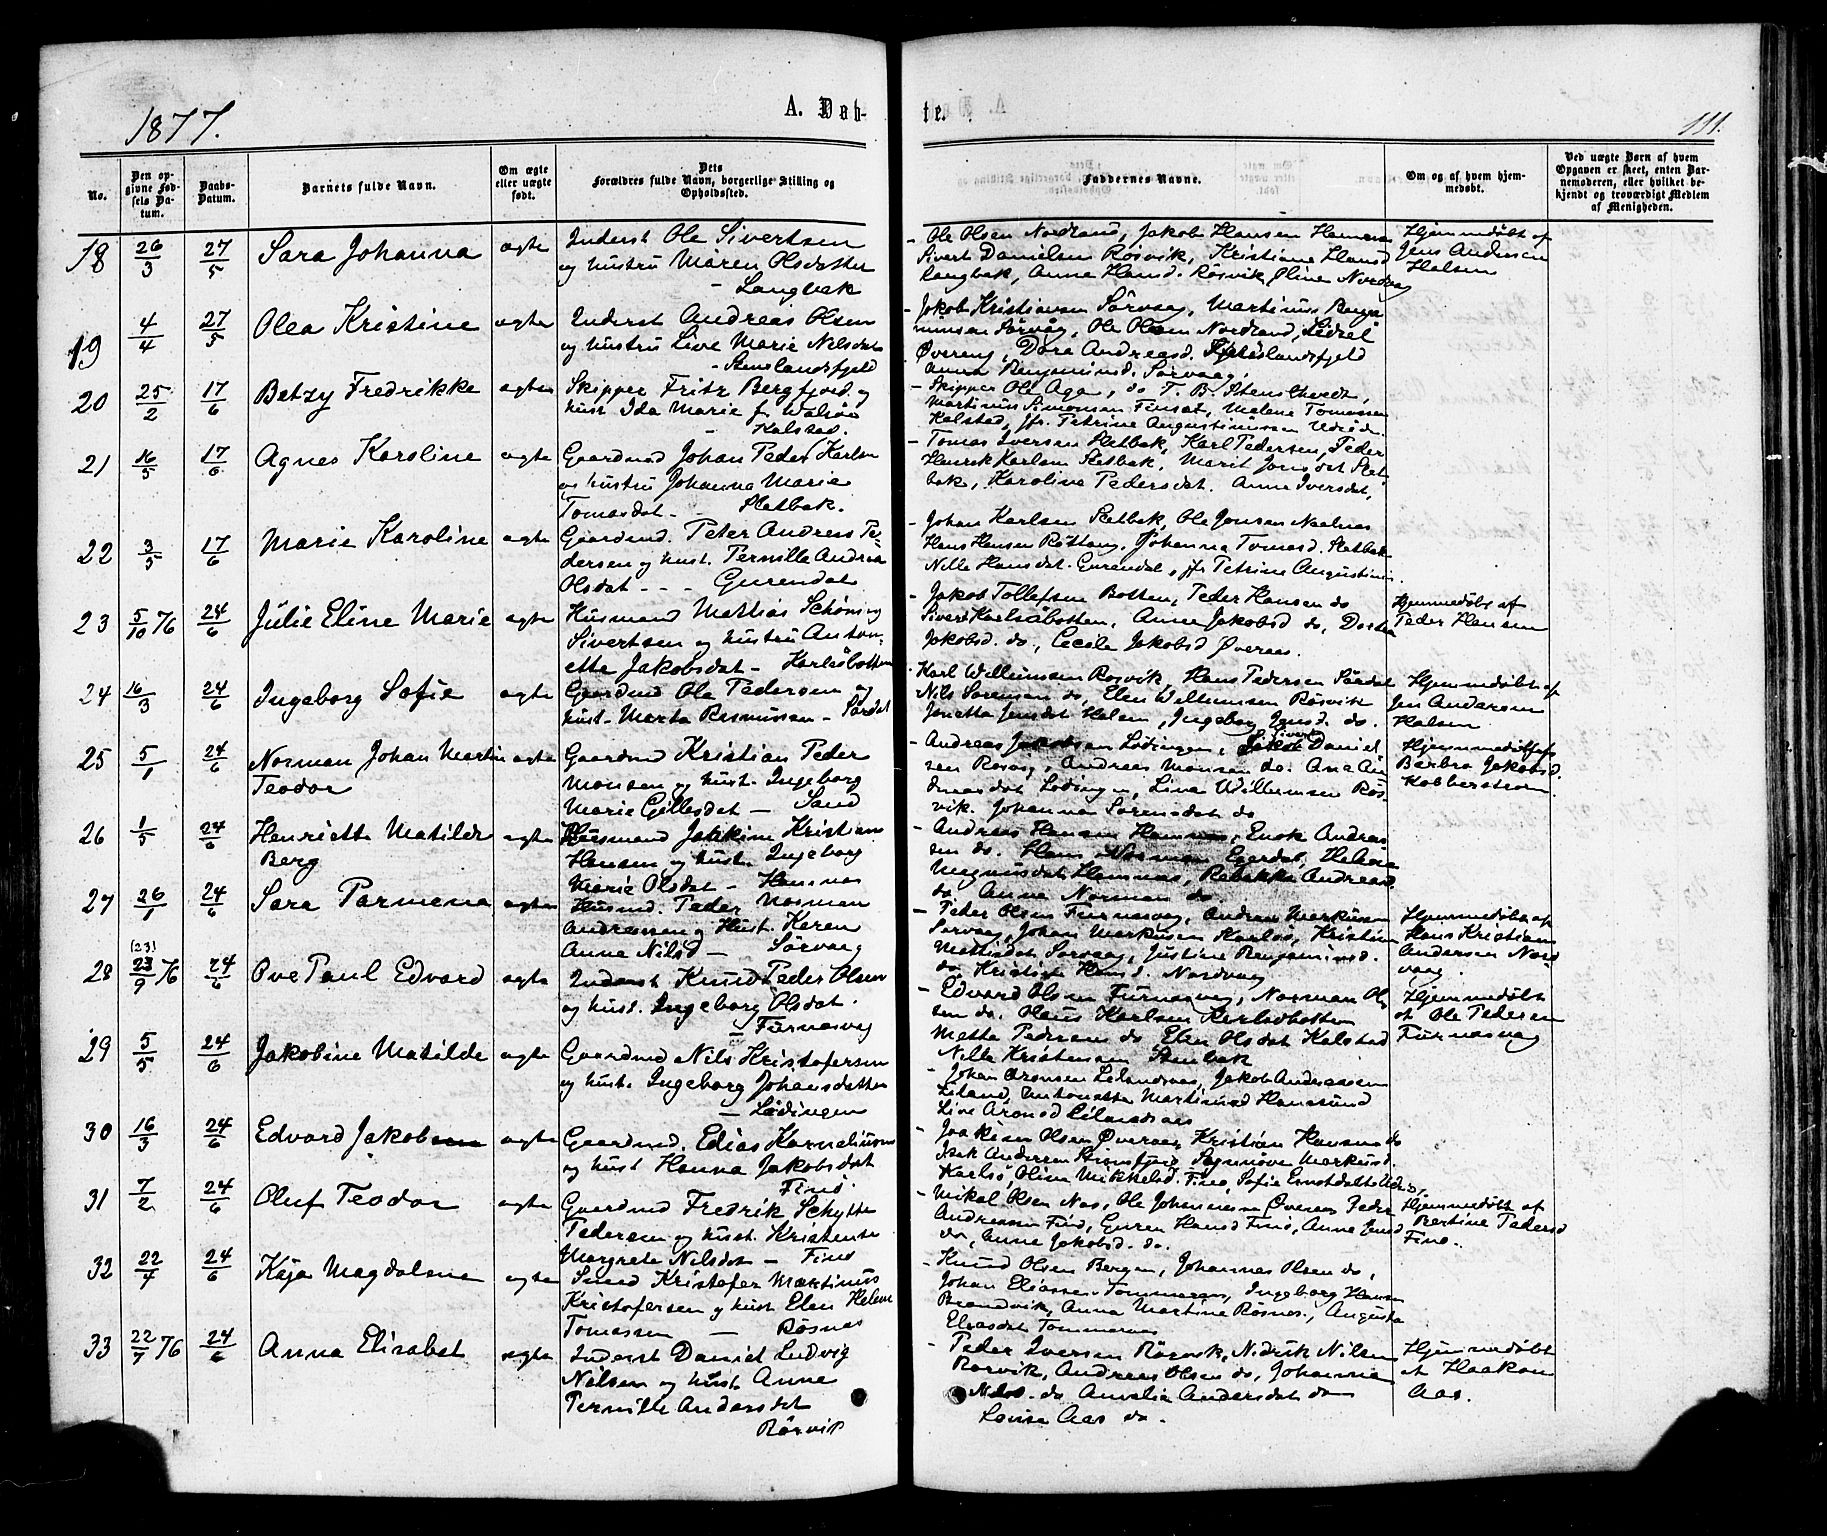 1877.
A. Døb-
te.
111.
No.
Den op-
givne Fød-
sels Da-
tum.
Daabs-
Datum.
Barnets fulde Navn.
Om ægte
eller uægte
født.
Dets
Forældres fulde Navn, borgerlige Stilling og
Opholdssted.
Faddernes Navne.
Om og af hvem hjem-
medøbt.
Ved uægte Børn af hvem
Opgaven er skeet, enten Bar-
nemoderen, eller hvilket be-
kjendt og troværdigt Medlem
af Menigheden.
18 26/3 27/5 Sara Johanna ægte
Inderst Ole Sivertsen
og hustru Maren Olsdatter
- Langbak
- Ole Olsen Nordland, Jakob Hansen Hamnes
Sivert Danielsen Rösvik, Kristiane Hansd
Langbak, Anne Hansd. Rösvik, Oline Nordvag
Hjemmedøbt af
Jens Andersen
Halsen
19 4/4 27/5 Olea Kristine ægte
Inderst Andreas Olsen
og hustru Live Marie Nilsdat
- Stenslandsfjeld
- Jakob Kristiansen Sörvaag, Martinus Benja
minsen Sörvag, Ole Olsen Nordland, Sidsel
Övereng, Dora Andreasd. Stenslandsfjeld
Anna Benjamind. Sörvaag.
20 25/2 17/6 Betzy Fredrikke ægte
Skipper Fritz Bergfjord og
hust Ida Marie f. Walsöe
- Kalstad.
- Skipper Ole Aga, do T. B. Stenstvedt,
Martinus Simonsen Finsæt, Melene Tomassen
Kalstad, jfr. Petrine Augustinusen
21 16/5 17/6 Agnes Karoline ægte
Gaardmd Johan Peder Karlsen
og hustru Johanna Marie
Tomasdat - - Sletbak.
- Tomas Iversen Sletbak, Karl Pedersen, Peder
Henrik Karlsen Sletbak, Marit Jonsdat Slet
bak, Karoline Pedersdat. Anne Iversdat,
22 3/5 17/6 Marie Karoline ægte
Gaardmd. Peter Andreas Pe-
dersen og hust. Pernille Andrea
Olsdat - - - Gurendal
- Johan Karlsen Sletbak, Ole Jonsen Naelnes
Hans Hansen Röttang, Johanna Tomasd. Sletbak
Nille Hansdat. Gurendal, jfr Petrine Augustinus.
23 5/10 76 24/6 Julie Eline Marie ægte
Husmand Mathias Schöning
Sivertsen og hustru Anton-
ette Jakobsdat - Karlsöbotten
- Jakob Tollefsen Botten, Peder Hansen do
Sivert Karlsöbotten, Anne Jakobsd do, Dorthea
Jakobsd. do, Cecile Jakobsd Överaas.
Hjemmedøbt af
Peder Hansen
24 16/3 24/6 Ingeborg Sofie ægte
Gaardmd Ole Pedersen og
hust. Marta Rasmussen - Sördal
- Karl Willumsen Rosvik, Hans Pedersen Sördal
Nils Sörensen do, Elen Willumsen Rösvik
Jonetta Jensdat Halsen, Ingeborg Jensd. do.
Hjemmedøbt af
Jens Andersen
Halsen
25 5/1 24/6 Norman Johan Martin ægte
Teodor
Gaardmd Kristian Peder
Monsen og hust. Ingeborg
Marie Gillesdat - Sand
- Andreas Jakobsen Lödingen, Sivert Daniel
sen Rosvig, Andreas Monsen do. Ane An
dreasdat Lödingen, Lina Willumsen Rös
vik. Johanna Sörensdat do
Hjemmedøbt af
Barbro Jakobsd.
Kobberstrom.
26 1/5 24/6 Henriette Matilde ægte
Berg
Husmand Joakim Kristian
Hansen og hust. Ingeborg
Marie Olsdat - Hamnes
- Andreas Hansen Hamnes, Enok Andrea
sen do. Hans Norman Egerdal, Helene
Magnusdat Hamnes, Rebekka Andreasd
do Anna Norman do.
27 26/1 24/6 Sara Parmena ægte
Husmd. Peder Norman
Andreassen og Hust. Karen
Anna Nilsd - Sörvaag
- Peder Olsen Furnesvag, Andreas Markusen
Sorvaag, Johan Markusen Karlsö, Kristine
Mattisdat Sorvaag, Justine Benjaminsd.
do Kristine Hansd. Nordvaag
Hjemmedøbt af
Hans Kristian
Andersen Nord
vaag.
28 (23) 23/9 76 24/6 Ove Paul Edvard ægte
Inderst Knud Peder Olsen
og hust. Ingeborg Olsdat.
- Furnesvag
- Edvard Olsen Furnesvag, Norman Ol
sen do. Olaus Karlsen Karlsöbotten
Metta Pedersen do Elen Olsdat Kalstad
Nille Kristensen Stenbak
Hjemmedøbt
af Ole Pedersen
Furnesvag
29 5/5 24/6 Jakobine Matilde ægte
Gaardmd Nils Kristofersen
og hust. Ingeborg Johansdatter
- Lödingen
- Johan Aronsen Leilandnes, Jakob Andreassen
Leiland, Antonette Martinusd Hamsund
Live Aronsd Leilandnes
30 16/3 24/6 Edvard Jakobsen ægte
Gaardmd. Edias Korneliusen
og hust Hanna Jakobsdat
Finö.
- Joakim Olsen Överaas, Kristian Hansen do
Isak Andersen Stensfjeld, Sagnnöve Markusd.
Karlsö, Oline Mikkelsd. Finö, Sofie Ernstdatter
31 7/2 24/6 Oluf Teodor ægte
Gaardmd Fredrik Schytte
Pedersen og hust. Kristense
Margrete Nilsdat - Finö
- Mikal Olsen Nes, Ole Johannesen Överaas, Peder
Andreassen Finö, Guren Hansd Finö, Anne Jensd
do, Anne Jakobsd. do.
Hjemmedøbt af
Bertine Pedersd
Finö.
32 22/4 24/6 Kaja Magdalene ægte
Smed Kristofer Martinus
Kristofersen og hust Elen Helene
Tomassen - Rösnes
- Knud Olsen Bergen, Johannes Olsen do,
Johan Eliassen Tommernes, Ingeborg Hansen
Brandvik, Anna Martine Rösnes, Augusta
Eliasdat Tommernes
33 22/7 76 24/6 Anna Elisabet ægte
Inderst Daniel Ludvig
Nilsen og hust Anne
Pernille Andersdat
Rörvik
- Peder Iversen Rörvik, Nidrik Nilsen
Rorvik, Andreas Olsen do, Johanna
Nilsd. do Amelia Andersdat do
Lovise Aas do.
Hjemmedøbt
af Haakon
Aas.